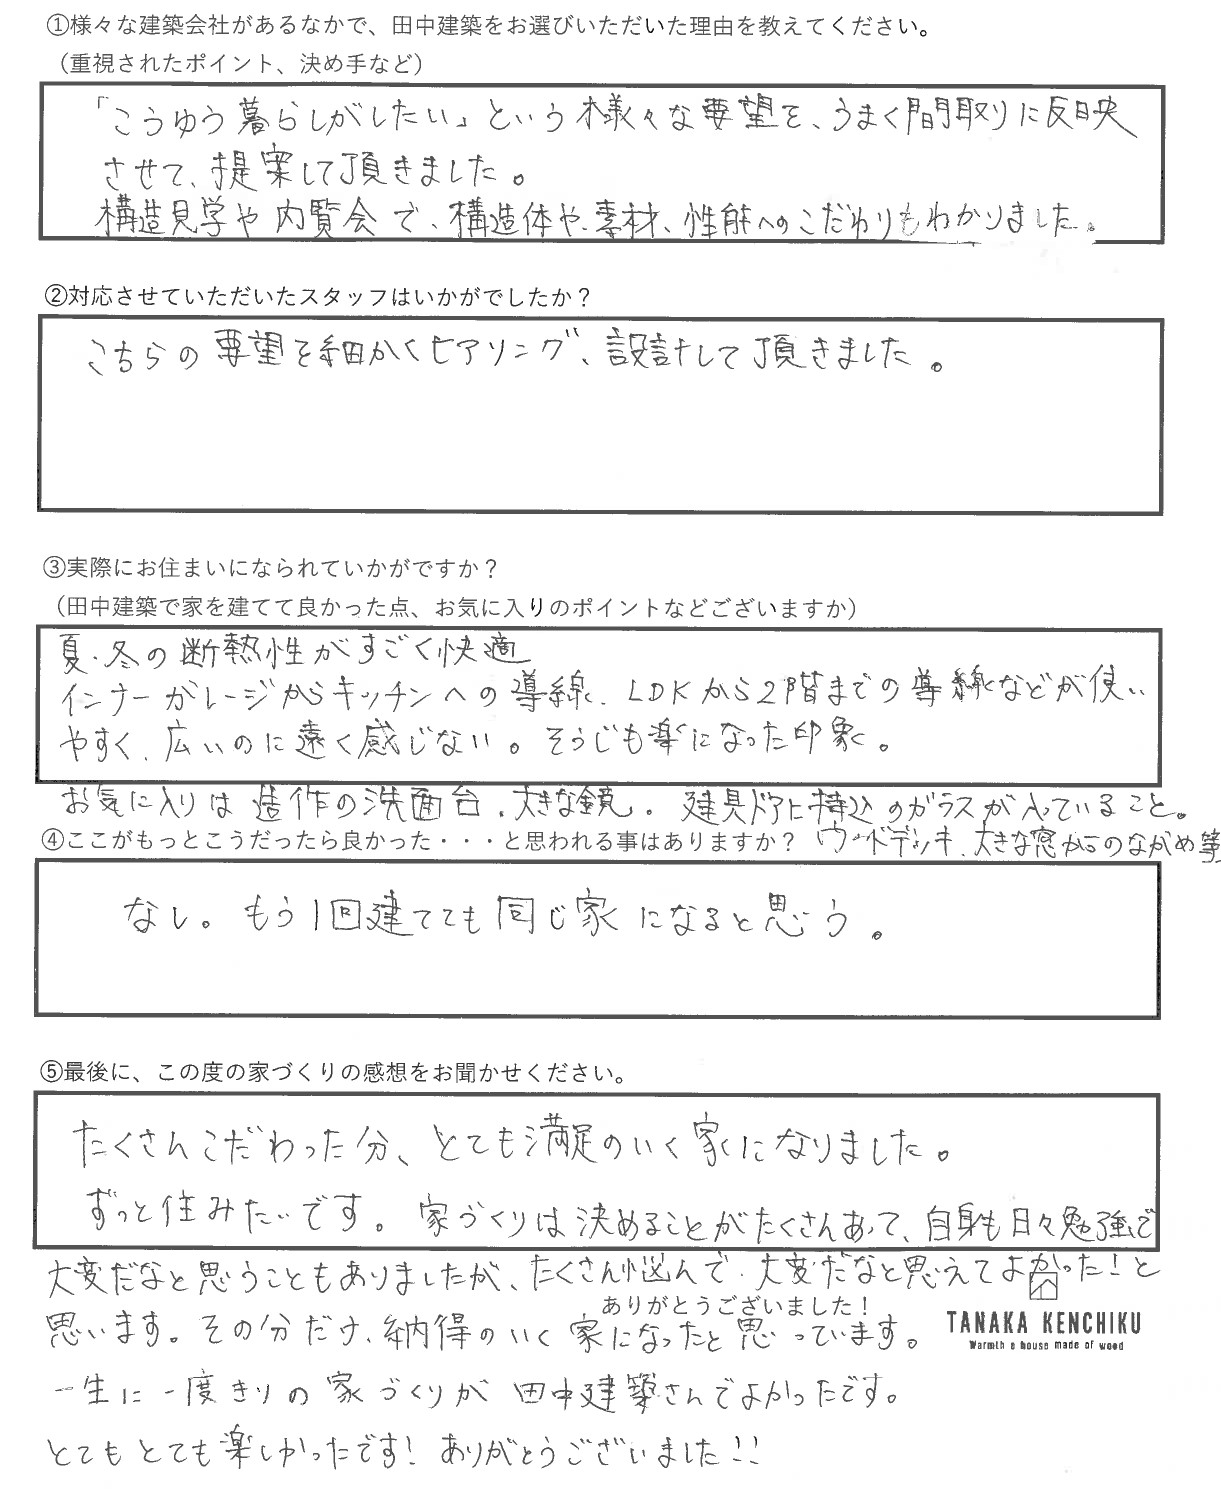 ①様々な建築会社があるなかで、田中建築をお選びいただいた理由を教えてください。
（重視されたポイント、決め手など）
「こうゆう暮らしがしたい」という様々な要望を、うまく間取りに反映
させて、提案して頂きました。
構造見学や内覧会で、構造体や、素材、性能へのこだわりもわかりました。
②対応させていただいたスタッフはいかがでしたか？
こちらの要望を細かくヒアリング、設計して頂きました。
③実際にお住まいになられていかがですか？
（田中建築で家を建てて良かった点、お気に入りのポイントなどございますか）
夏、冬の断熱性がすごく快適
インナーガレージからキッチンへの導線、LDKから2階までの導線などが使い
やすく、広いのに遠く感じない。そうじも楽になった印象。
お気に入りは造作の洗面台、大きな鏡。建具ドアに持込のガラスが入っていること。
④ここがもっとこうだったら良かった・・・と思われる事はありますか？ ウッドデッキ、大きな窓からのながめ等
なし。もう1回建てても同じ家になると思う。
⑤最後に、この度の家づくりの感想をお聞かせください。
たくさんこだわった分、とても満足のいく家になりました。
ずっと住みたいです。家づくりは決めることがたくさんあって、自身も日々勉強で
大変だなと思うこともありましたが、たくさん悩んで、大変だなと思えてよかった！と
ありがとうございました！
思います。その分だけ、納得のいく家になったと思っています。
TANAKA KENCHIKU
Warmth a house made of wood
一生に一度きりの家づくりが田中建築さんでよかったです。
とてもとても楽しかったです！ありがとうございました！！